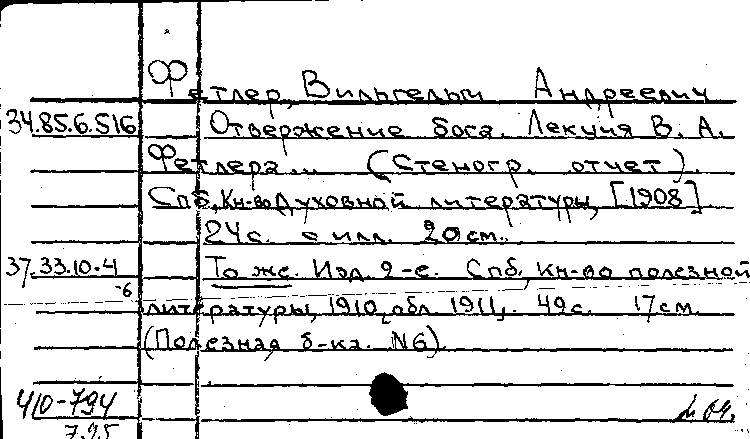 Фетлер, Вильгельм Андреевич
34.85.6.516 Отвержение бога. Лекция В. А.
Фетлера... (Стеногр. отчет).
Спб, Кн-во Духовной литературы, [1908]
24с. с илл. 20см.
37.33.10.4 То же. Изд. 2-е. Спб, Кн-во полезной
-6
литературы, 1910, обл. 1911. 49с. 17см.
(Полезная б-ка. N6)
410-794
795